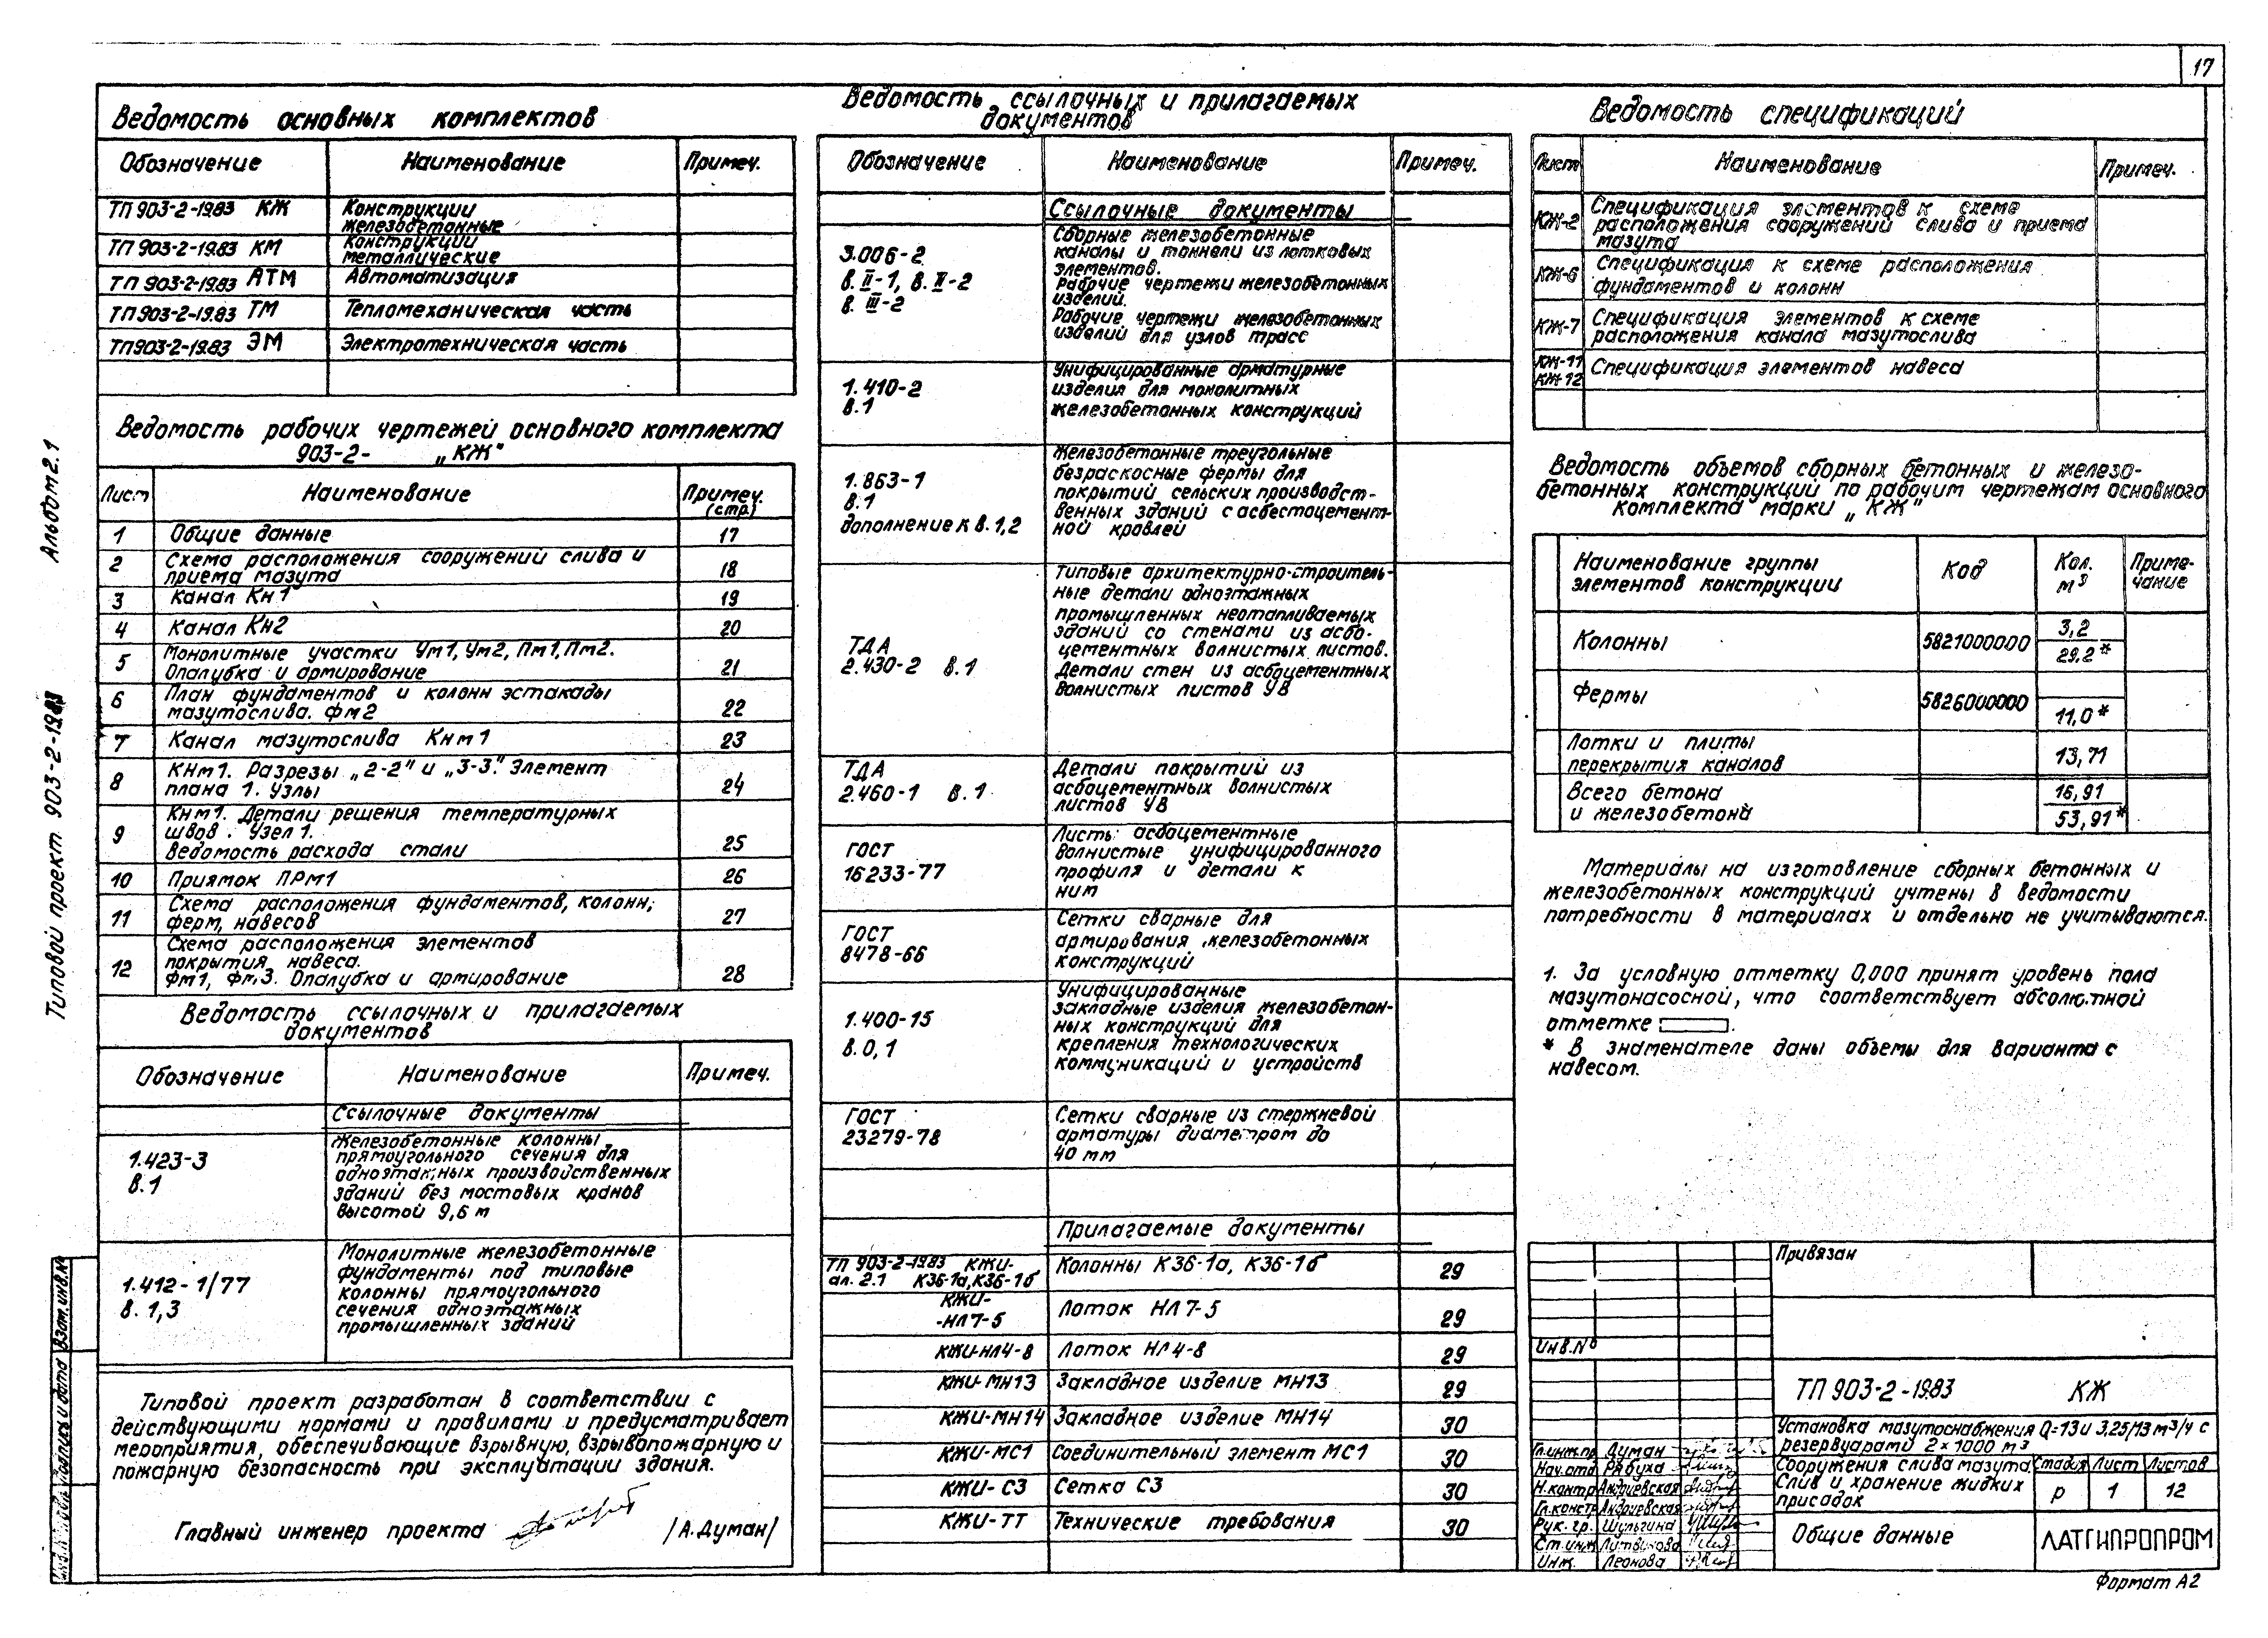 17
Альбом 2.1
Типовой проект 903-2-19.83
Ведомость основных комплектов
Обозначение Наименование Примеч.
ТП 903-2-19.83 КЖ Конструкции
железобетонные
ТП 903-2-19.83 КМ Конструкции
металлические
ТП 903-2-19.83 АТМ Автоматизация
ТП 903-2-19.83 ТМ Тепломеханическая часть
ТП 903-2-19.83 ЭМ Электротехническая часть
Ведомость рабочих чертежей основного комплекта
903-2- „КЖ"
Лист Наименование Примеч.
(стр.)
1 Общие данные 17
2 Схема расположения сооружений слива и
приема мазута 18
3 Канал Кн1 19
4 Канал Кн2 20
5 Монолитные участки Ум1, Ум2, Пм1, Пм2.
Опалубка и армирование 21
6 План фундаментов и колонн эстакады
мазутослива. Фм2 22
7 Канал мазутослива Кнм1 23
8 КНм1. Разрезы „2-2" и „3-3". Элемент
плана 1. Узлы 24
9 Кнм1. Детали решения температурных
швов. Узел 1.
Ведомость расхода стали 25
10 Приямок ПРм1 26
11 Схема расположения фундаментов, колонн,
ферм, навесов 27
12 Схема расположения элементов
покрытия навеса.
Фм1, Фм3. Опалубка и армирование 28
Ведомость ссылочных и прилагаемых
документов
Обозначение Наименование Примеч.
Ссылочные документы
1.423-3
в.1
Железобетонные колонны
прямоугольного сечения для
одноэтажных производственных
зданий без мостовых кранов
высотой 9,6 м
1.412-1/77
в. 1,3
Монолитные железобетонные
фундаменты под типовые
колонны прямоугольного
сечения одноэтажных
промышленных зданий
Типовой проект разработан в соответствии с
действующими нормами и правилами и предусматривает
мероприятия, обеспечивающие взрывную, взрывопожарную и
пожарную безопасность при эксплуатации здания.
Главный инженер проекта /А.Думан/
Ведомость ссылочных и прилагаемых
документов
Обозначение Наименование Примеч.
Ссылочные документы
3.006-2
в. II-1, в. II-2
в. III-2
Сборные железобетонные
каналы и тоннели из лотковых
элементов.
Рабочие чертежи железобетонных
изделий.
Рабочие чертежи железобетонных
изделий для узлов трасс
1.410-2
в.1
Унифицированные арматурные
изделия для монолитных
железобетонных конструкций
1.863-1
в.1
дополнение к в.1,2
Железобетонные треугольные
безраскосные фермы для
покрытий сельских производст-
венных зданий с асбестоцемент-
ной кровлей
ТДА
2.430-2 в.1
Типовые архитектурно-строитель-
ные детали одноэтажных
промышленных неотапливаемых
зданий со стенами из асбо-
цементных волнистых листов.
Детали стен из асбоцементных
волнистых листов УВ
ТДА
2.460-1 в.1
Детали покрытий из
асбоцементных волнистых
листов УВ
ГОСТ
16233-77
Листы асбоцементные
волнистые унифицированного
профиля и детали к
ним
ГОСТ
8478-66
Сетки сварные для
армирования железобетонных
конструкций
1.400-15
в.0,1
Унифицированные
закладные изделия железобетон-
ных конструкций для
крепления технологических
коммуникаций и устройств
ГОСТ
23279-78
Сетки сварные из стержневой
арматуры диаметром до
40 мм
Прилагаемые документы
ТП 903-2-19.83 КЖИ-
ал. 2.1 К36-1а, К36-1б
Колонны К36-1а, К36-1б 29
КЖИ-
-НЛ7-5
Лоток НЛ 7-5 29
КЖИ-НЛ4-8 Лоток НЛ4-8 29
КЖИ-МН13 Закладное изделие МН13 29
КЖИ-МН14 Закладное изделие МН14 30
КЖИ-МС1 Соединительный элемент МС1 30
КЖИ-С3 Сетка С3 30
КЖИ-ТТ Технические требования 30
Ведомость спецификаций
Лист Наименование Примеч.
КЖ-2 Спецификация элементов к схеме
расположения сооружений слива и приема
мазута
КЖ-6 Спецификация к схеме расположения
фундаментов и колонн
КЖ-7 Спецификация элементов к схеме
расположения канала мазутослива
КЖ-11
КЖ-12
Спецификация элементов навеса
Ведомость объемов сборных бетонных и железо-
бетонных конструкций по рабочим чертежам основного
комплекта марки „КЖ"
Наименование группы
элементов конструкции
Код
Кол.
м³
Приме-
чание
Колонны 5821000000 3,2
29,2*
Фермы 5826000000
11,0*
Лотки и плиты
перекрытия каналов
13,71
Всего бетона
и железобетона
16,91
53,91*
Материалы на изготовление сборных бетонных и
железобетонных конструкций учтены в ведомости
потребности в материалах и отдельно не учитываются.
1. За условную отметку 0,000 принят уровень пола
мазутонасосной, что соответствует абсолютной
отметке .
* В знаменателе даны объемы для варианта с
навесом.
Привязан
Инв.№
ТП 903-2-19.83 КЖ
Установка мазутоснабжения Q=13 и 3,25/13 м³/ч с
резервуарами 2×1000 м³
Сооружения слива мазута.
Слив и хранение жидких
присадок
Стадия Лист Листов
р 1 12
Общие данные
ЛАТГИПРОПРОМ
Гл.инж.пр. Думан
Нач.отд. Рябуха
Н.контр Андриевская
Гл.констр Андриевская
Рук. гр. Шульгина
Ст.инж Литвинова
Инж. Леонова
Формат А2
Взам. инв.№
Подпись и дата